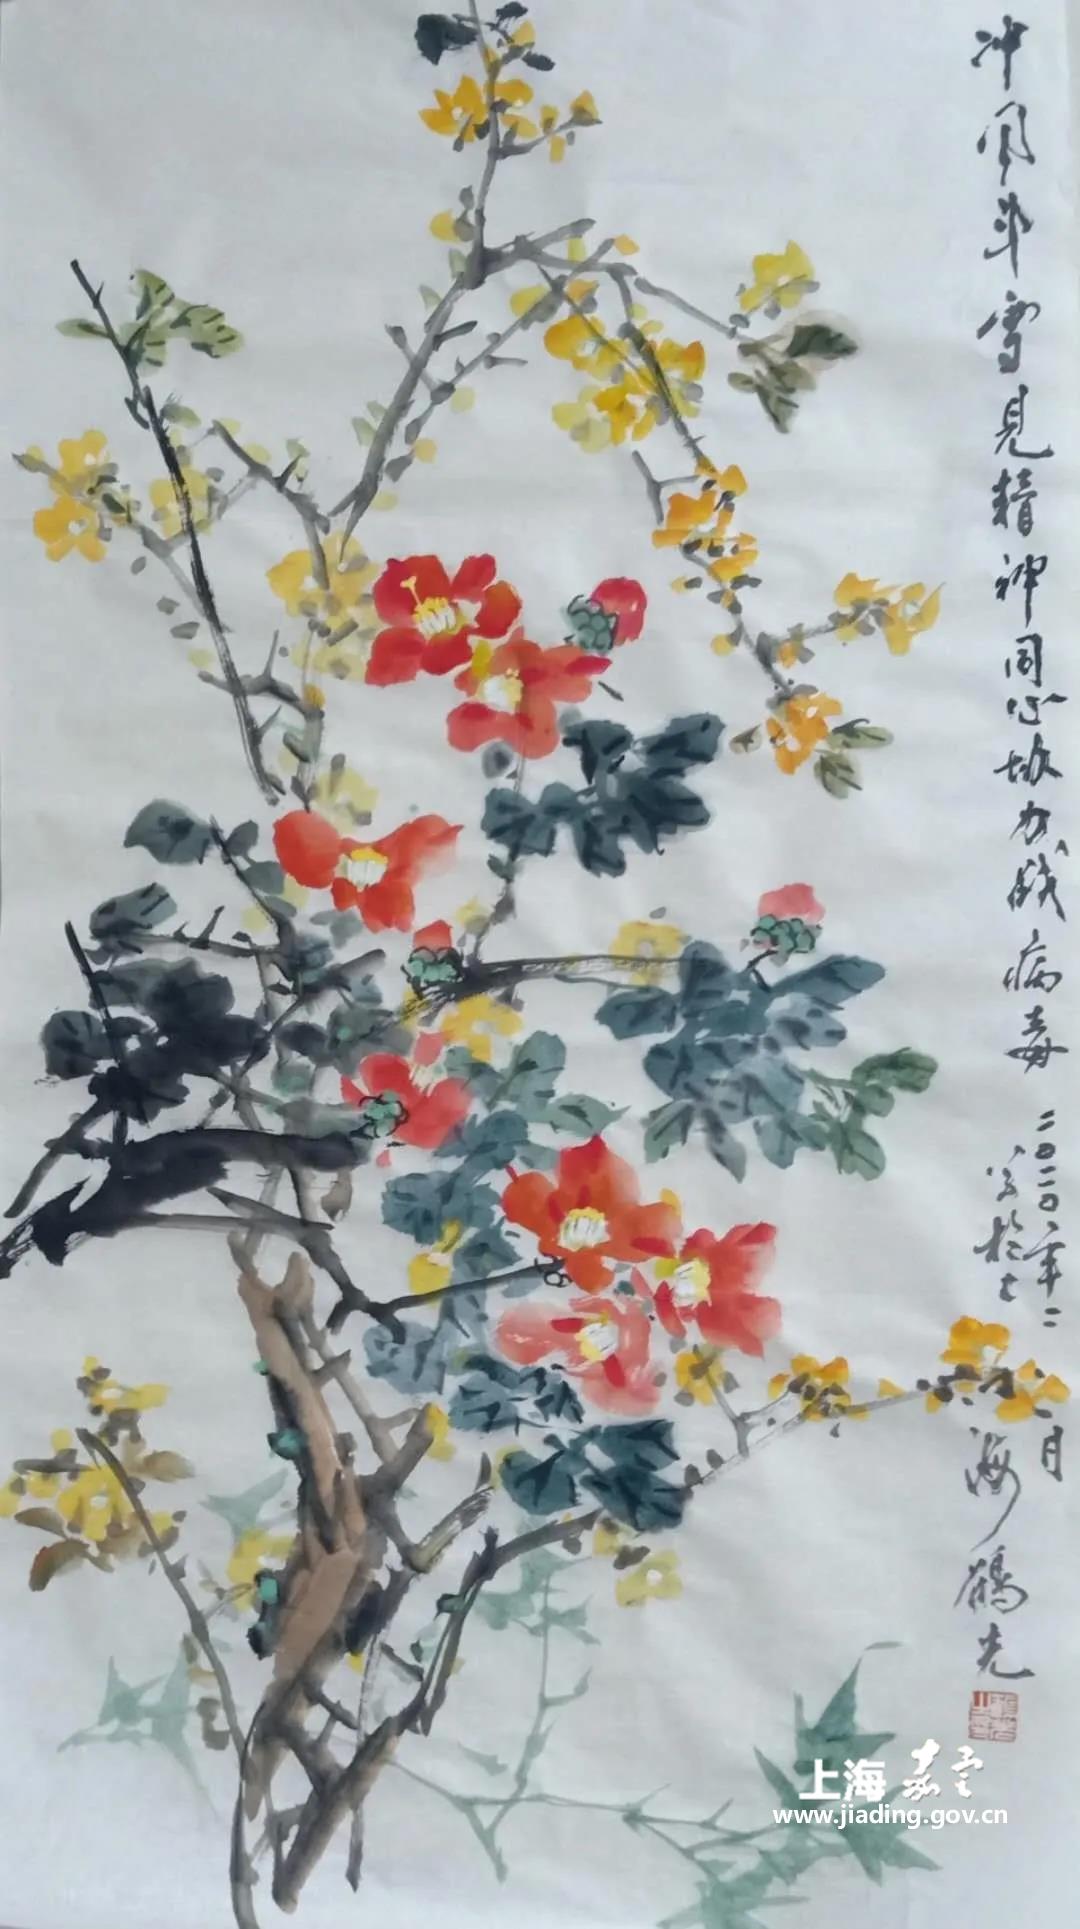 冲风斗雪见精神同心协力战病毒
二〇二〇年二月
海鹤光
上海嘉定
www.jiading.gov.cn